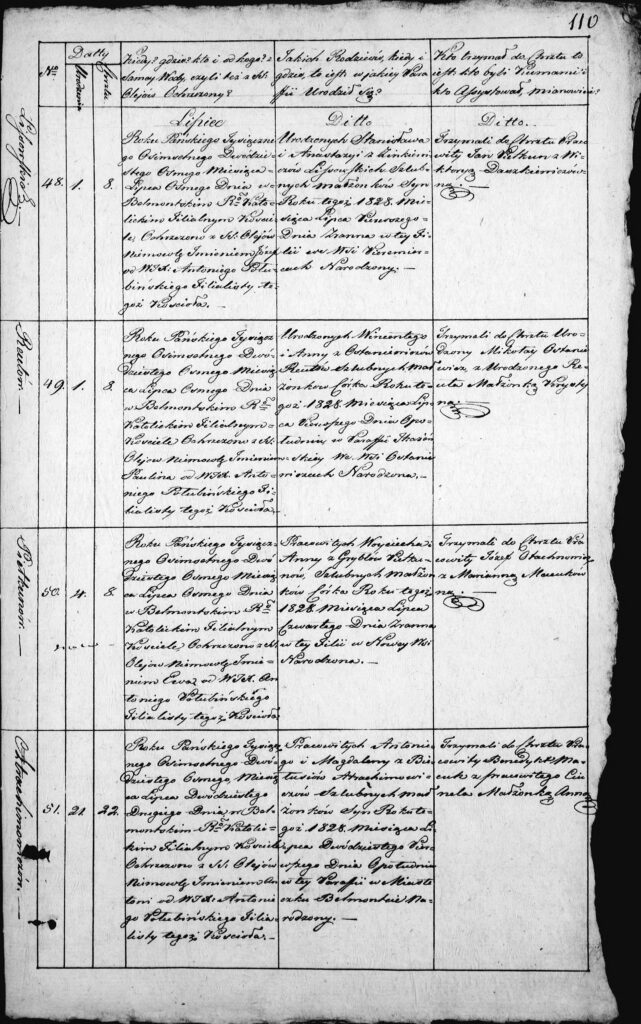 110
Nº
Datty
Urodzenia
Chrztu
Kiedy? gdzie? kto i od kogo? z
Samej Wody, czyli też z SS.
Olejów Ochrzczony?
Jakich Rodziców, kiedy i
gdzie, to iest: w jakiey Para
ffii Urodził Się?
Kto trzymał do Chrztu to
iest: kto byli Kumami i
kto Assystował, mianowicie?
Lipiec
Ditto
Ditto
48.
1.
8.
Roku Pańskiego Tysiączne
go Osimsetnego Dwudzie
stego Osmego Miesiąca
Lipca Osmego Dnia w
Belmontskim Rº Kato
lickim Filialnym Koście
le, Ochrzczono z SS. Olejów
Niemowlę Imieniem Józef
od WJX: Antoniego Połu
bińskiego Filialisty te
goż Kościoła. —
Urodzonych Stanisława
i Anastazyi z
Szlub
nych małżonków Syn
Roku tegoż 1828. Mie
siąca Lipca Pierwszego
Dnia Zranna w tey Fi
lii we Wsi
Narodzony. —
Trzymali do Chrztu Praco
wity Jan Pietkun z Wi
ktoryą
49.
1.
8.
Roku Pańskiego Tysiącz
nego Osimsetnego Dwó
dziestego Osmego Miesią
ca Lipca Osmego Dnia
w Belmontskim Rº
Katolickim Filialnym
Kościele Ochrzczono z SS.
Olejów Niemowlę Imieniem
Paulina od WJX. Anto
niego Połubińskiego Fi
lialisty tegoż Kościoła.
Urodzonych Wincentego
i Anny z Ostaniewiczów
Reutów Szlubnych mał
żonków Córka Roku te
goż 1828. Miesiąca Lip
ca Pierwszego Dnia Opo
łudniu w Paraffii Ikaźń
skiey we Wsi
Narodzona. —
Trzymali do Chrztu Uro
dzony Mikołay Ostanie
wicz, z Urodzonego Re
uta Małżonką
50.
4.
8.
Roku Pańskiego Tysiącz
nego Osimsetnego Dwó
dziestego Osmego Miesią
ca Lipca Osmego Dnia
w Belmontskim Rº
Katolickim Filialnym
Kościele Ochrzczono z SS.
Olejów Niemowlę Imie
niem Ewa od WJX. An
toniego Połubińskiego
Filialisty tegoż Kościoła
Pracowitych Woyciecha i
Anny z Gryblów Pietku
nów, Szlubnych Małżon
ków Córka Roku tegoż
1828. Miesiąca Lipca
Czwartego Dnia Zranna
w tey Filii w Nowey Wsi
Narodzona. —
Trzymali do Chrztu Pra
cowity Józef
z Marianną
51.
21.
22.
Roku Pańskiego Tysiącz
nego Osimsetnego Dwó
dziestego Osmego Miesią
ca Lipca Dwudziestego
Drugiego Dnia w Bel
montskim Rº Katolic
kim Filialnym Kościele
Ochrzczono z SS. Olejów
Niemowlę Imieniem An
toni od WJX: Antonie
go Połubińskiego Filia
listy tegoż Kościoła. —
Pracowitych Antonie
go i Magdaleny z Bie
Szlubnych Mał
żonków Syn Roku te
goż 1828. Miesiąca Li
pca Dwudziestego Pier
wszego Dnia Opołudniu
w tey Paraffii w Miaste
czku Belmontcie Na
rodzony. —
Trzymali do Chrztu Pra
cowity Benedykt Ma
cuk z pracowitego
Małżonką Anną